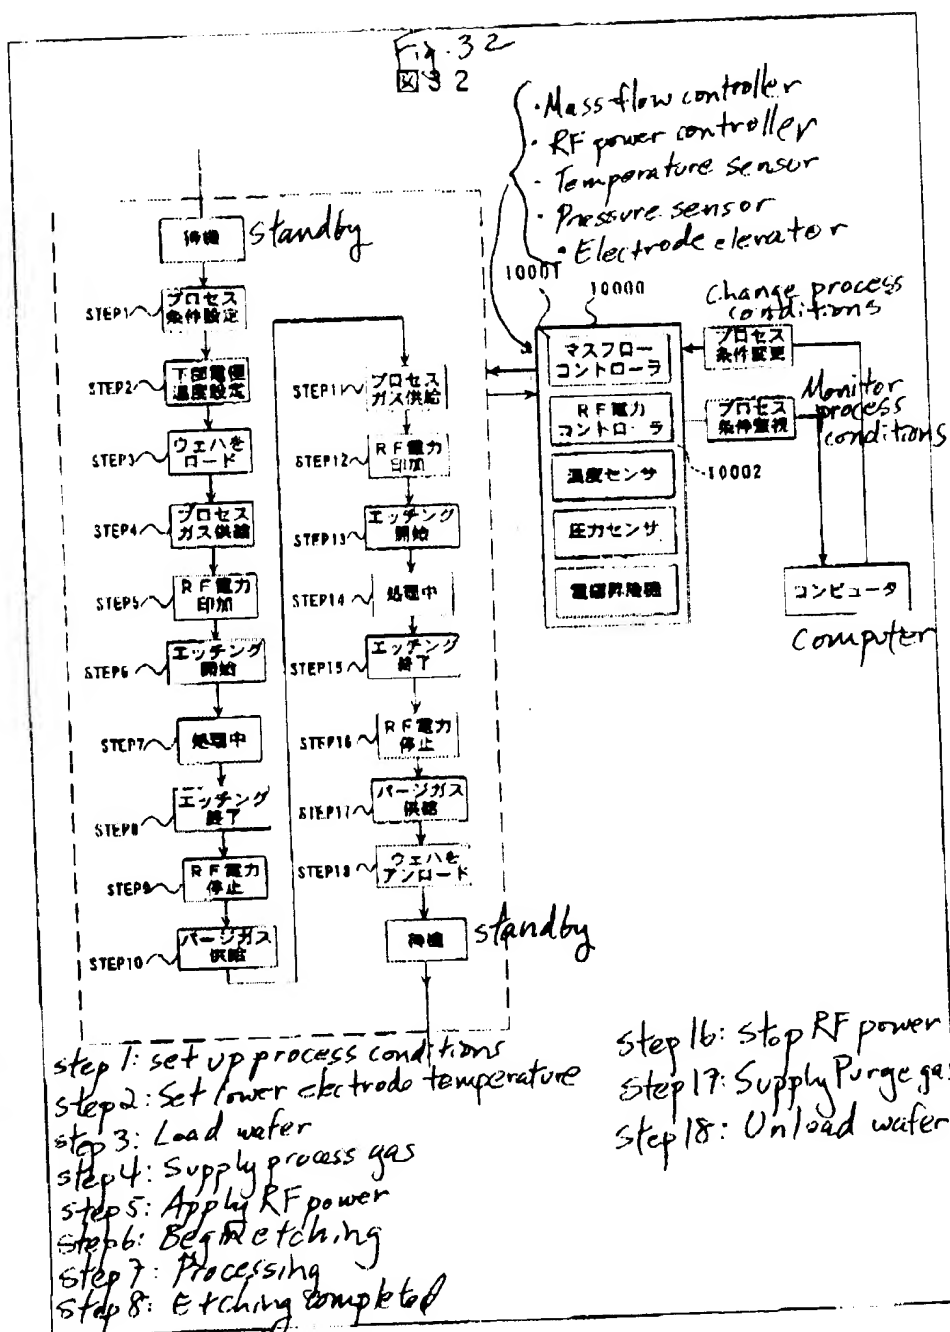 Fig. 32
図32
・Mass flow controller
・RF power controller
・Temperature sensor
・Pressure sensor
・Electrode elevator
待機
standby
STEP1
プロセス
条件設定
STEP2
下部電極
温度設定
STEP3
ウェハを
ロード
STEP4
プロセス
ガス供給
STEP5
RF電力
印加
STEP6
エッチング
開始
STEP7
処理中
STEP8
エッチング
終了
STEP9
RF電力
停止
STEP10
パージガス
供給
STEP11
プロセス
ガス供給
STEP12
RF電力
印加
STEP13
エッチング
開始
STEP14
処理中
STEP15
エッチング
終了
STEP16
RF電力
停止
STEP17
パージガス
供給
STEP18
ウェハを
アンロード
待機
standby
10001
10000
マスフロー
コントローラ
RF電力
コントローラ
10002
温度センサ
圧力センサ
電極昇降機
Change process
conditions
プロセス
条件変更
Monitor
process
conditions
プロセス
条件監視
コンピュータ
Computer
step 1: set up process conditions
step 2: Set lower electrode temperature
step 3: Load wafer
step 4: Supply process gas
step 5: Apply RF power
step 6: Begin etching
step 7: Processing
step 8: Etching completed
step 16: Stop RF power
step 17: Supply Purge gas
step 18: Unload wafer